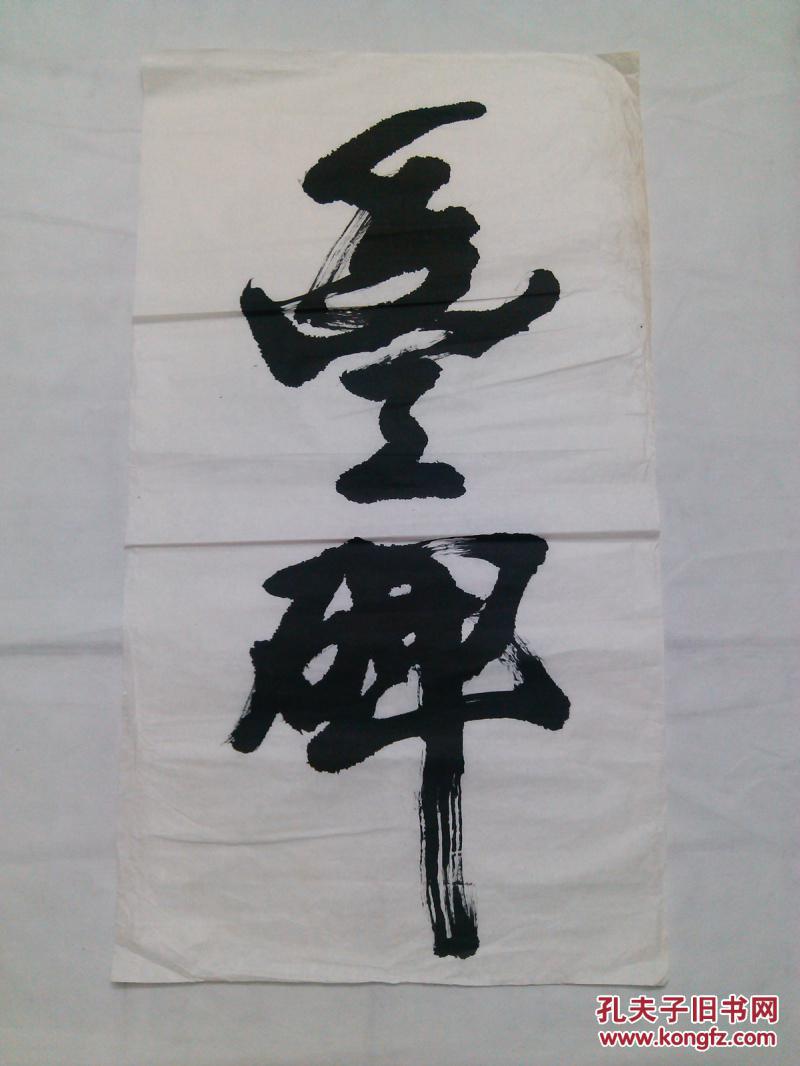 豐碑
孔夫子旧书网
www.kongfz.com